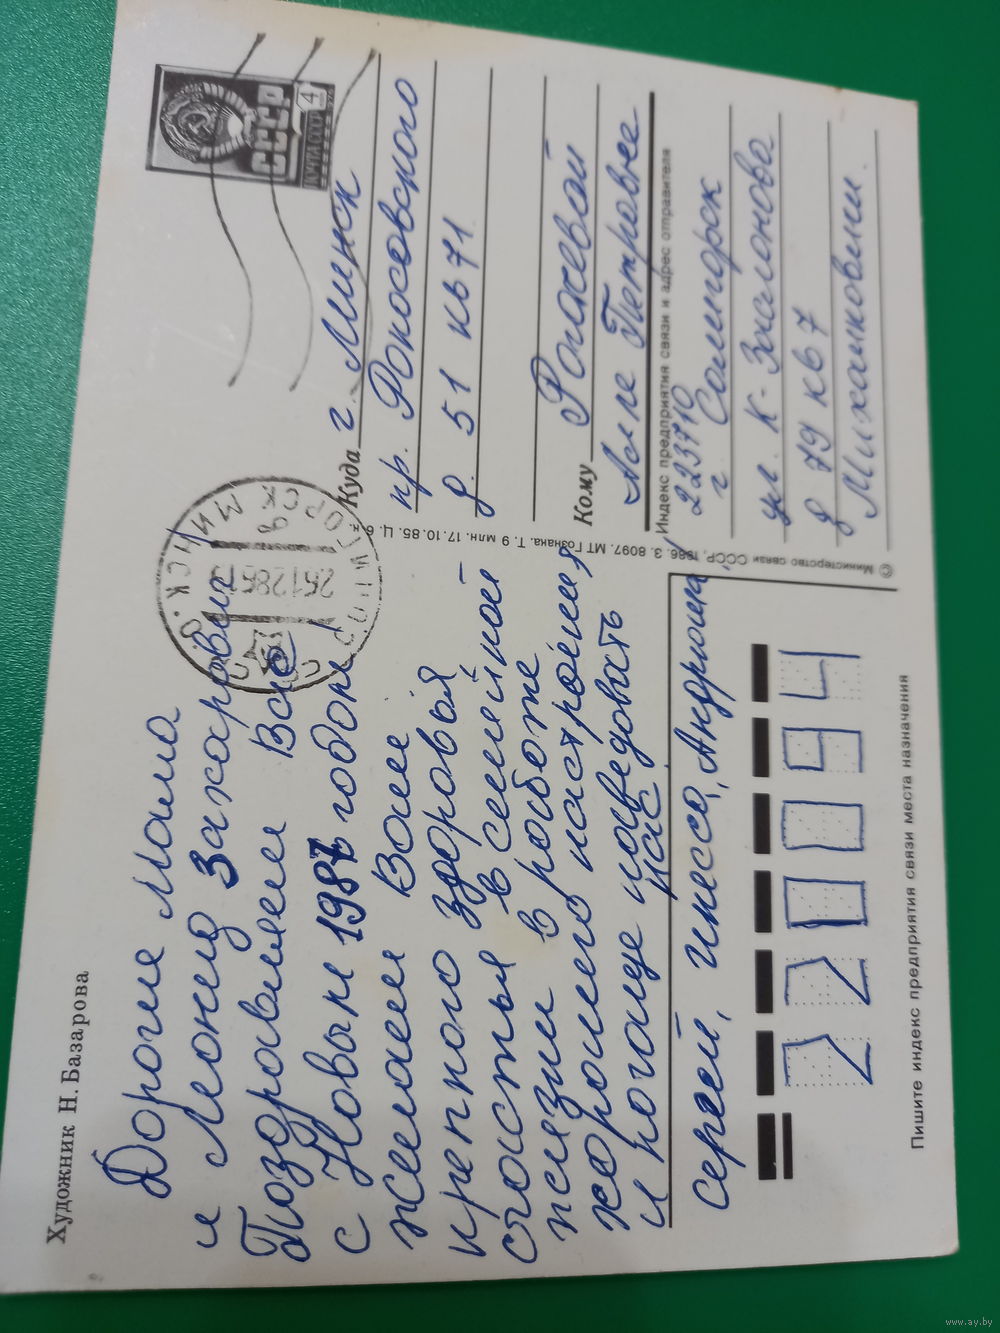 Художник Н. Базарова
Дорогие мама
и Леонид Захарович!
Поздравляем Вас
с Новым 1987 годом
желаем Вам
крепкого здоровья
счастья в семейной
жизни в работе
хорошего настроения,
и почаще наведовать
нас
Сергей, Инесса, Андрюша
ПОЧТА СССР
4
СССР
Куда г. Минск
пр. Рокосовского
д. 51 кв 71
Кому Рогачевой
Алле Петровне
Индекс предприятия связи и адрес отправителя
223710
г. Солигорск
ул. К-Заслонова
д 79 кв 7
Михалковичи.
© Министерство связи СССР, 1986. З. 8097. МТ Гознака. Т. 9 млн. 17.10.85. Ц. 6 к.
220094
Пишите индекс предприятия связи места назначения
www.ay.by